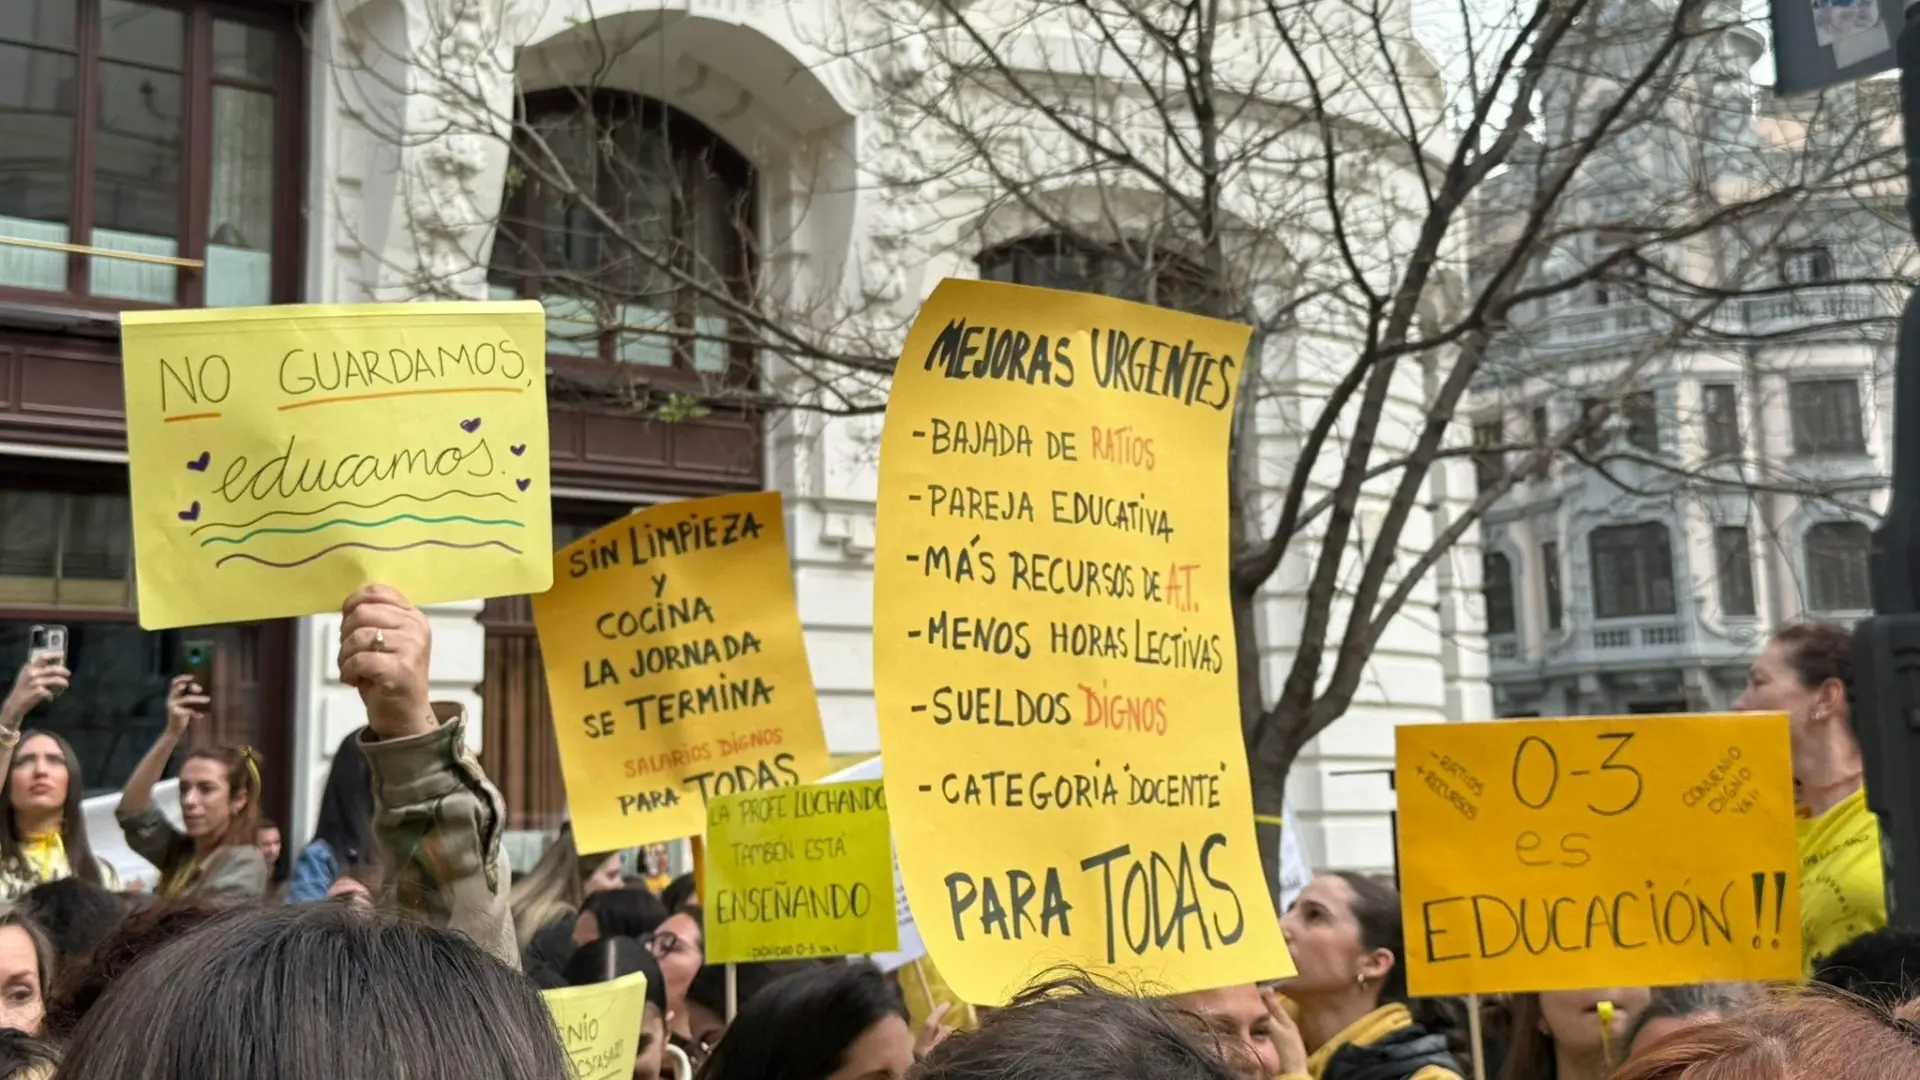 NO GUARDAMOS,
educamos.
SIN LIMPIEZA
Y
COCINA
LA JORNADA
SE TERMINA
SALARIOS DIGNOS
PARA TODAS
LA PROFE LUCHANDO
TAMBÉN ESTÁ
ENSEÑANDO
MEJORAS URGENTES
-BAJADA DE RATIOS
-PAREJA EDUCATIVA
-MÁS RECURSOS DE A.T.
-MENOS HORAS LECTIVAS
-SUELDOS DIGNOS
-CATEGORIA "DOCENTE"
PARA TODAS
-RATIOS
+RECURSOS
0-3
es
EDUCACIÓN!!
CONVENIO
DIGNO
YA!!